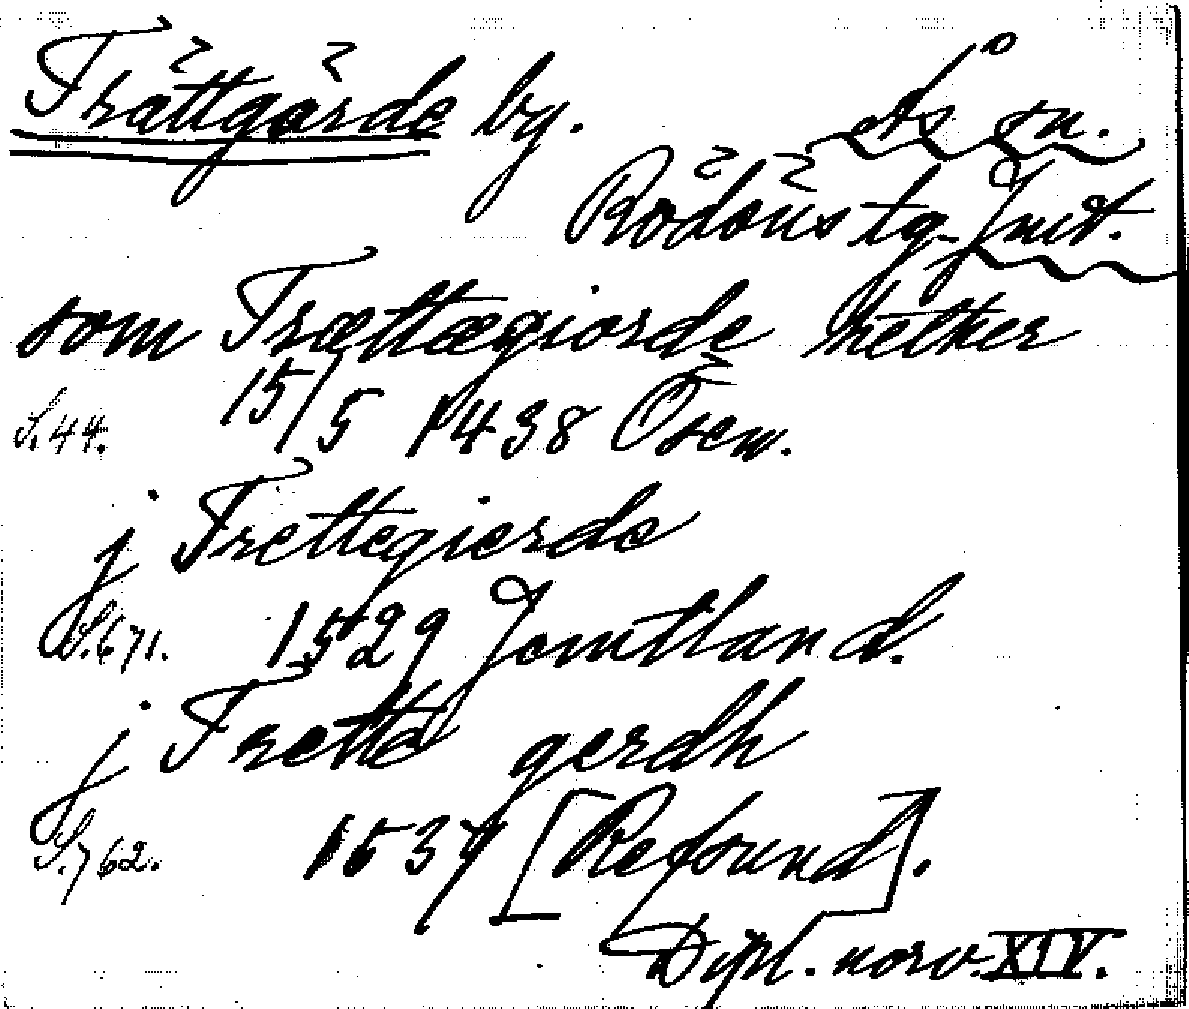 Trättgärde by. Ås sn.
Rödöns tg. Jmt.
som Trættægiorde hether
S.44. 15/5 1438 Ösew.
j Trettegierde
S.671. 1529 Jomtland.
j Trette gerdh
S.762. 1537 [Refsund].
Dipl. norv. XIV.